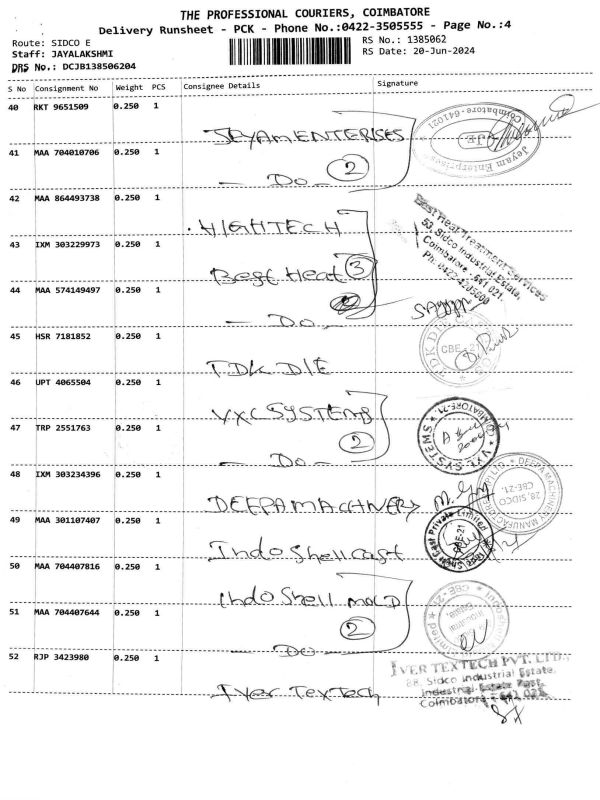 THE PROFESSIONAL COURIERS, COIMBATORE
Delivery Runsheet - PCK - Phone No.:0422-3505555 - Page No.:4
Route: SIDCO E
RS No.: 1385062
Staff: JAYALAKSHMI
RS Date: 20-Jun-2024
DRS No.: DCJB138506204
S No Consignment No Weight PCS Consignee Details Signature
40 RKT 9651509 0.250 1
JEYAM ENTERISES
Jeyam Enterprises
Coimbatore-641021
JE
41 MAA 704010706 0.250 1
- Do - 2
42 MAA 864493738 0.250 1
HIGHTECH
Best Heat Treatment Services
53, Sidco Industrial Estate,
Coimbatore - 641 021.
43 IXM 303229973 0.250 1
Best Heat 3
44 MAA 574149497 0.250 1
- Do -
45 HSR 7181852 0.250 1
TDK DIE
CBE-21
46 UPT 4065504 0.250 1
VXL SYSTEMS
VXL SYSTEMS
47 TRP 2551763 0.250 1
- Do - 2
48 IXM 303234396 0.250 1
DEEPA MACHINERY
28, SIDCO
CBE-21.
49 MAA 301107407 0.250 1
Indo Shell cast
CBE-21
50 MAA 704407816 0.250 1
Indo Shell MOLD
51 MAA 704407644 0.250 1
- Do - 2
52 RJP 3423980 0.250 1
Iyer TexTech
IYER TEXTECH PVT. LTD.,
88, Sidco Industrial Estate,
Industrial Estate Post,
Coimbatore - 641 021.